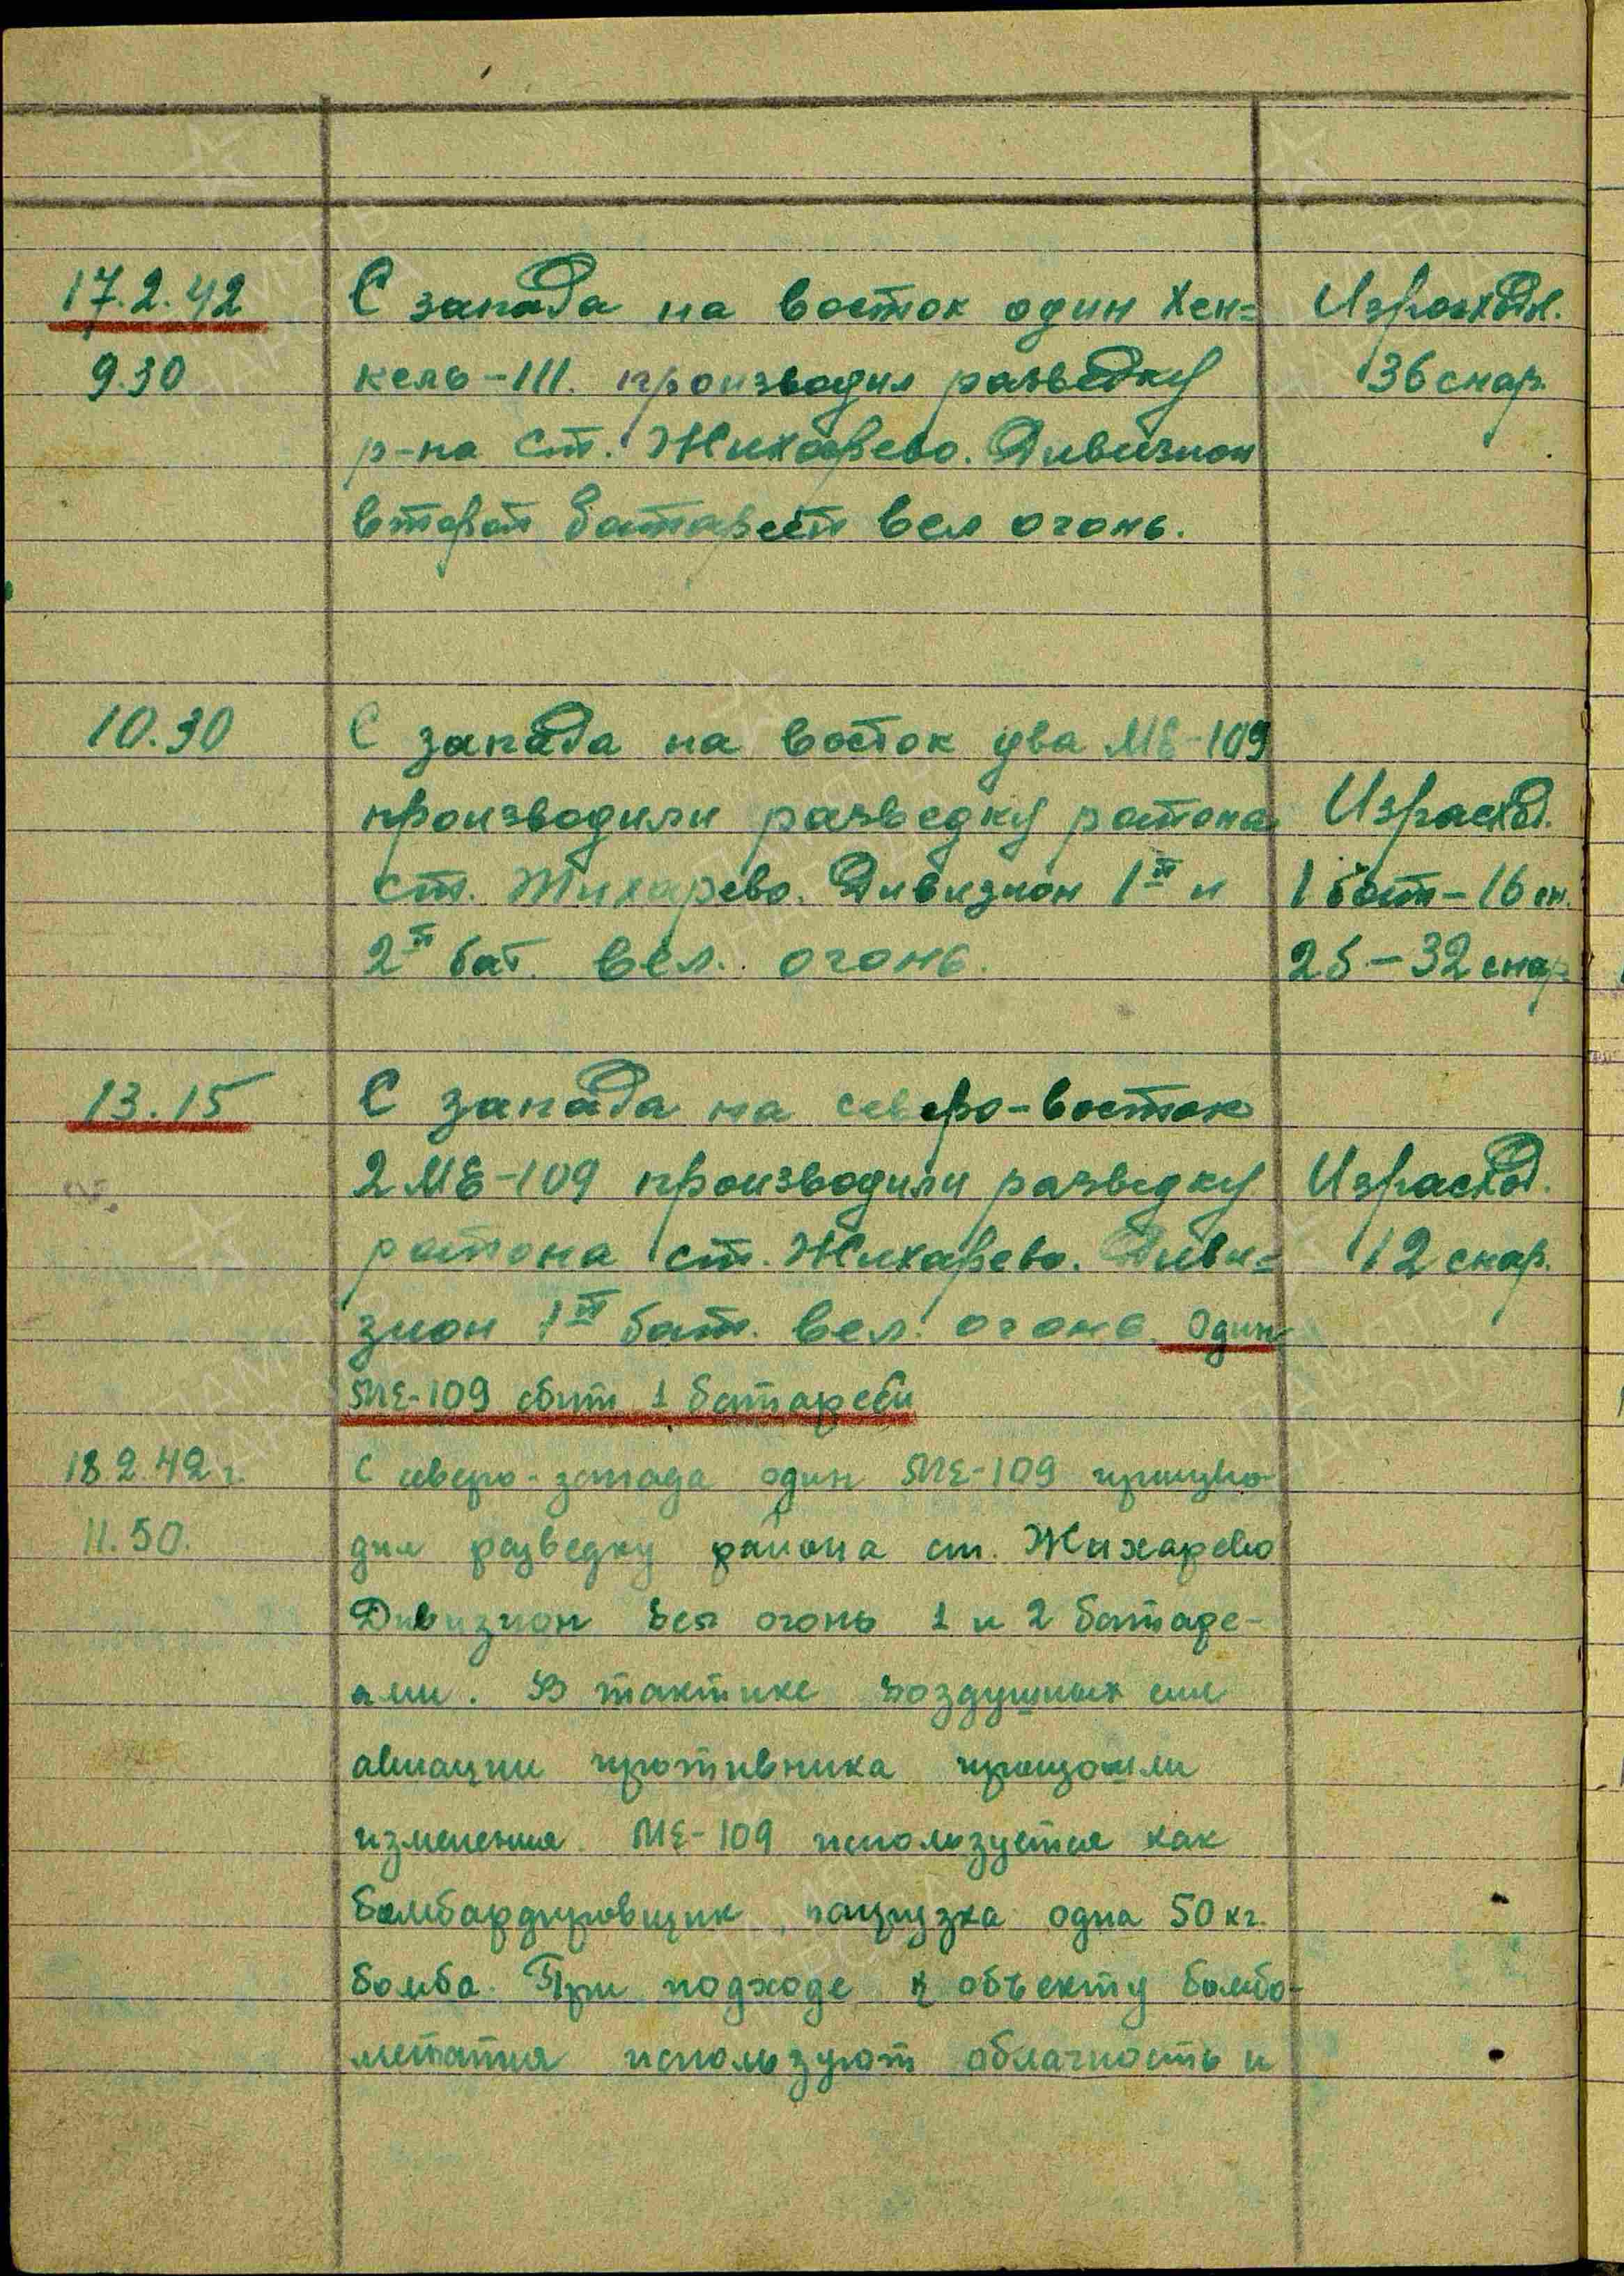 17.2.42 С запада на восток один Хен= Израсход.
9.30 кель-111. производил разведку 36 снар.
р-на ст. Жихарево. Дивизион
второй батареей вел огонь.
10.30 С запада на восток два МЕ-109
производили разведку района Израсход.
ст. Жихарево. Дивизион 1й и 1 бат-16 сн.
2й бат. вел. огонь. 2б-32 снар.
13.15 С запада на северо-восток
2 МЕ-109 производили разведку Израсход.
района ст. Жихарево. Диви= 12 снар.
зион 1й бат. вел. огонь. Один
МЕ-109 сбит 1 батареей
18.2.42 г. С северо-запада один МЕ-109 произво-
11.50. дил разведку района ст. Жихарево
Дивизион вел огонь 1 и 2 батаре-
ями. В тактике воздушных сил
авиации противника произошли
изменения. МЕ-109 используется как
бомбардировщик, нагрузка одна 50 кг.
бомба. При подходе к объекту бомбо-
метания используют облачность и
ПАМЯТЬ НАРОДА